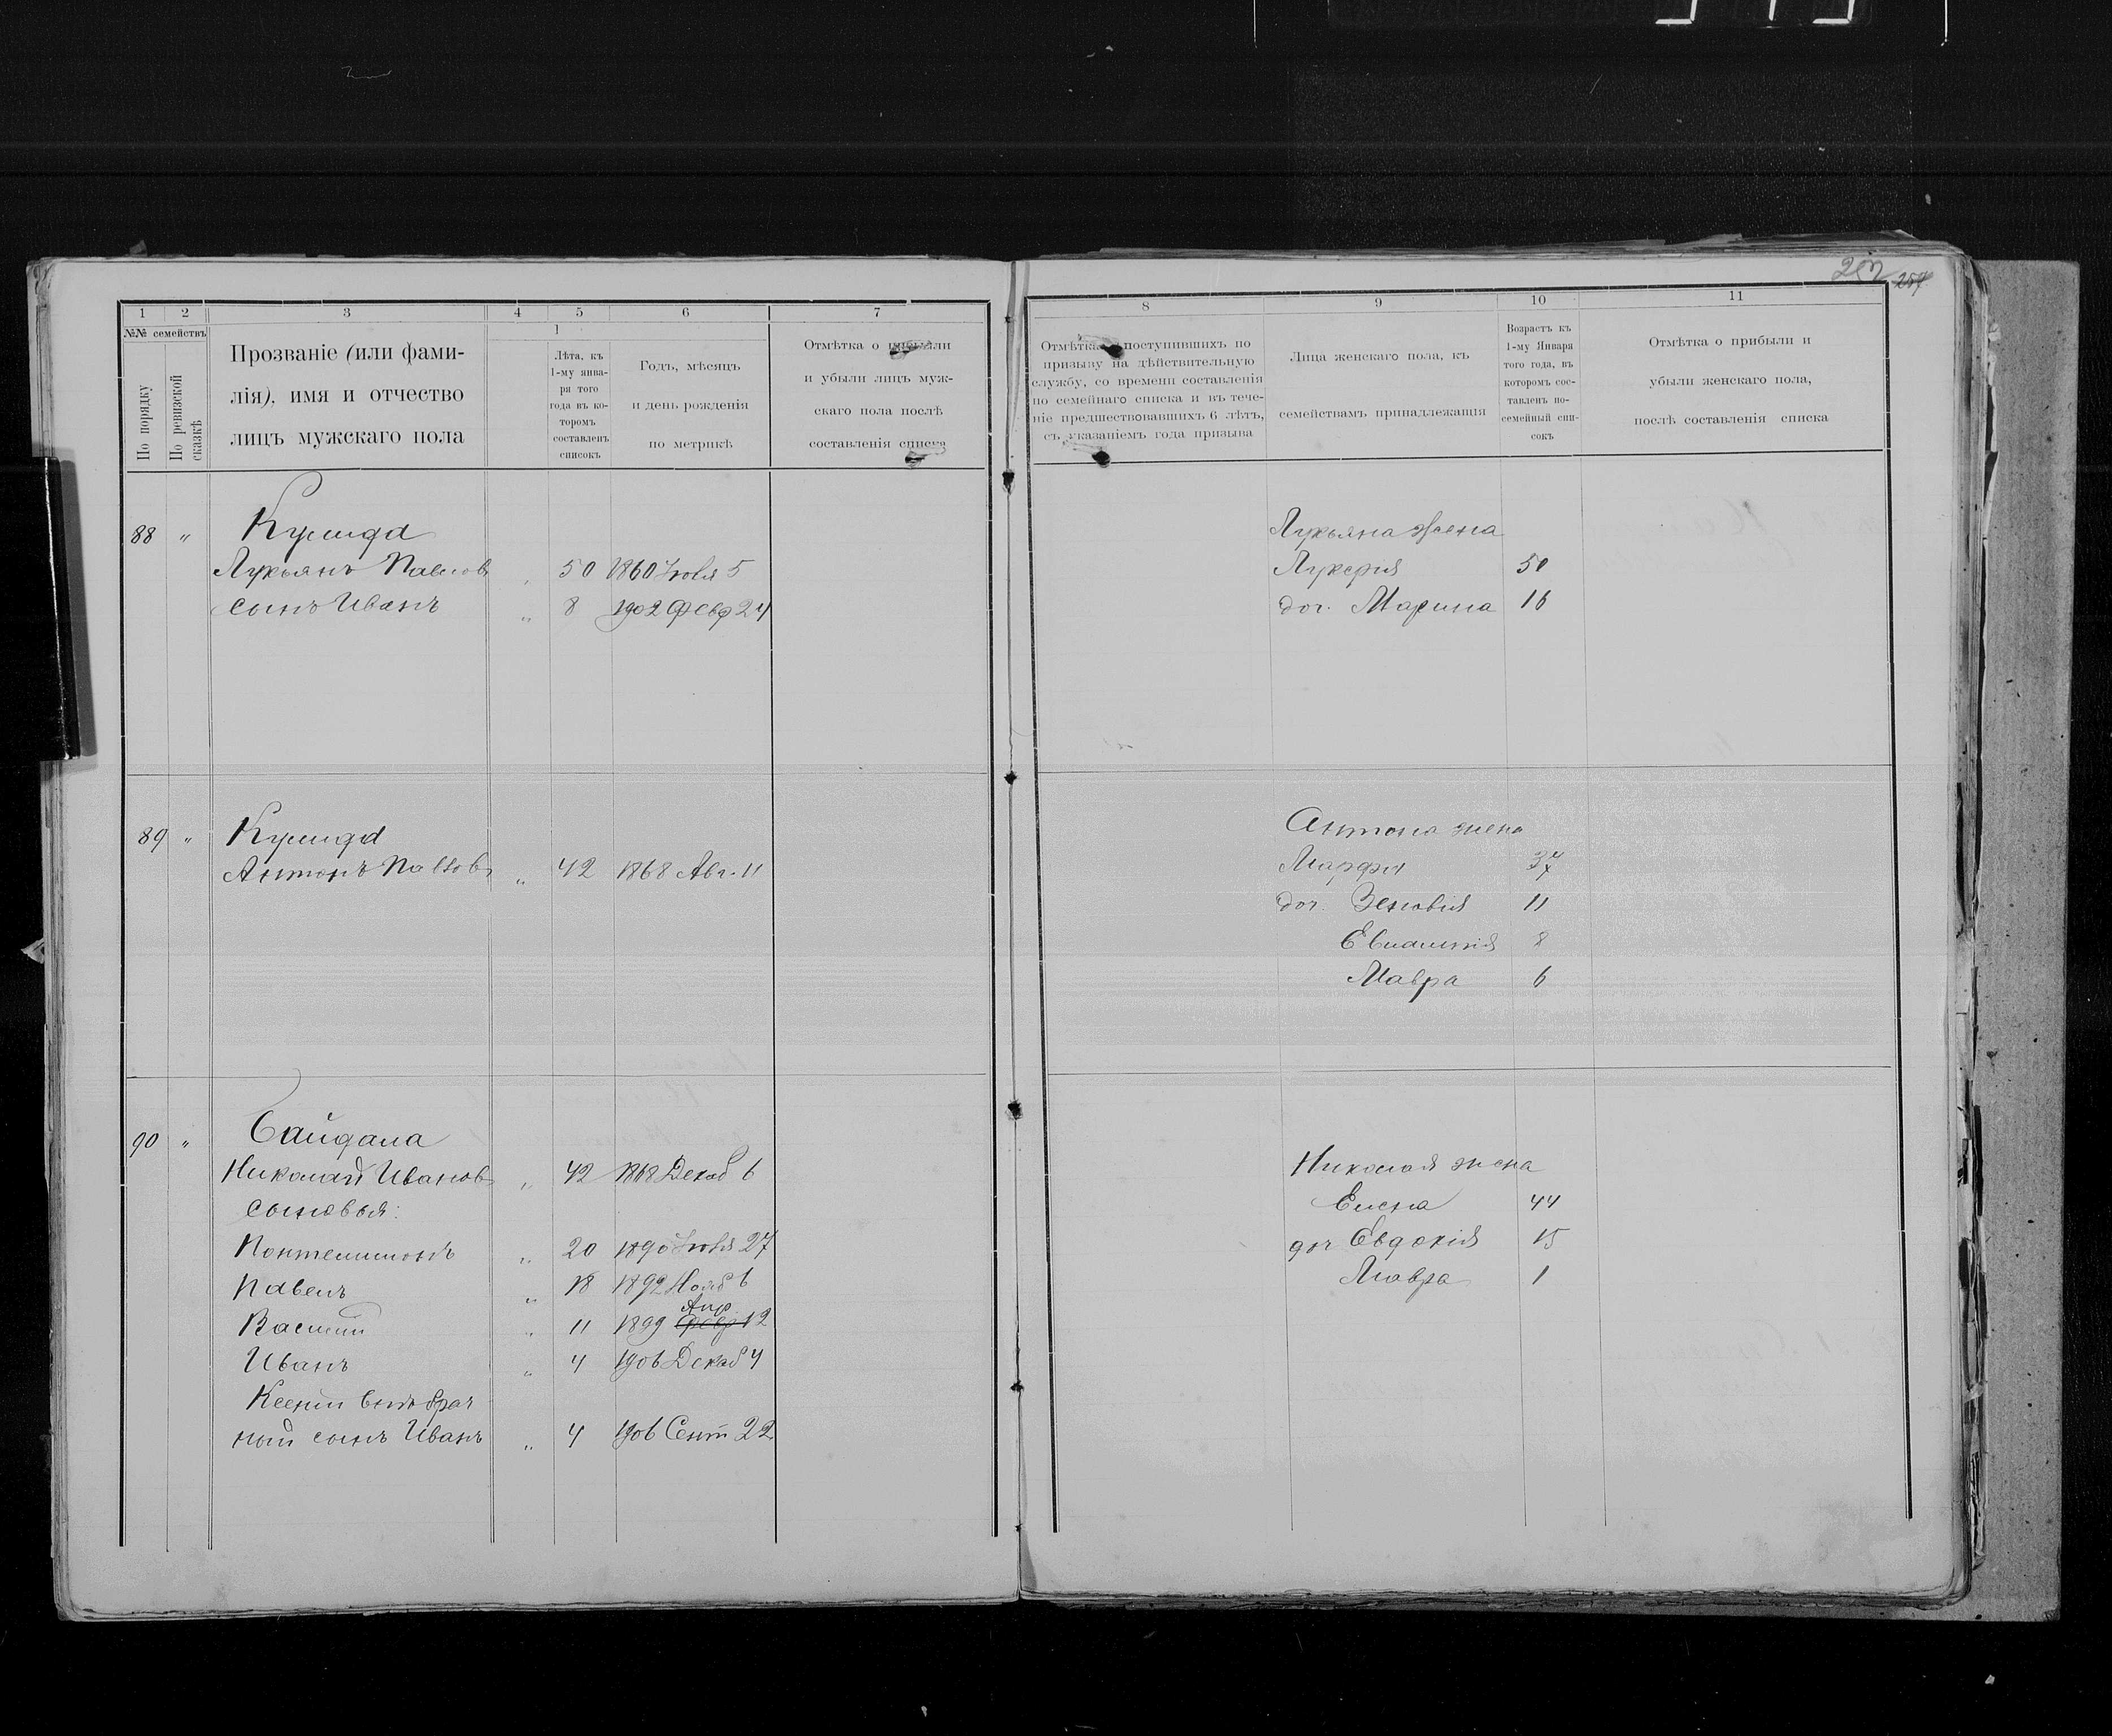 257
1 2 3 4 5 6 7
№№ семействъ
По порядку
По ревизской сказкѣ
Прозваніе (или фами-
лія), имя и отчество
лицъ мужскаго пола
1
Лѣта, къ
1-му янва-
ря того
года въ ко-
торомъ
составленъ
списокъ
Годъ, мѣсяцъ
и день рожденія
по метрикѣ
Отмѣтка о прибыли
и убыли лицъ муж-
скаго пола послѣ
составленія списка
88 "
Лукьянъ Павловъ " 50 1860 Іюля 5
сынъ Иванъ " 8 1902 Февр 24
89 "
Антонъ Павловъ " 42 1868 Авг. 11
90 " Байдала
Николай Ивановъ " 42 1868 Декаб 6
сыновья:
Понтелимонъ " 20 1890 Іюля 27
Павелъ " 18 1892 Нояб 6
Апр
Василій " 11 1899 Февр 12
Иванъ " 4 1906 Декаб 4
Ксеніи внѣбрач
ный сынъ Иванъ " 4 1906 Сент 22
8 9 10 11
Отмѣтка о поступившихъ по
призыву на дѣйствительную
службу, со времени составленія
по семейнаго списка и въ тече-
ніе предшествовавшихъ 6 лѣтъ,
съ указаніемъ года призыва
Лица женскаго пола, къ
семействамъ принадлежащія
Возрастъ къ
1-му Января
того года, въ
которомъ сос-
тавленъ по-
семейный спи-
сокъ
Отмѣтка о прибыли и
убыли женскаго пола,
послѣ составленія списка
Лукьяна жена
Лукерія 50
доч. Марина 16
Антона жена
Марфа 37
доч. Зеновія 11
8
Мавра 6
Николая жена
Елена 44
доч Евдокія 15
Мавра 1